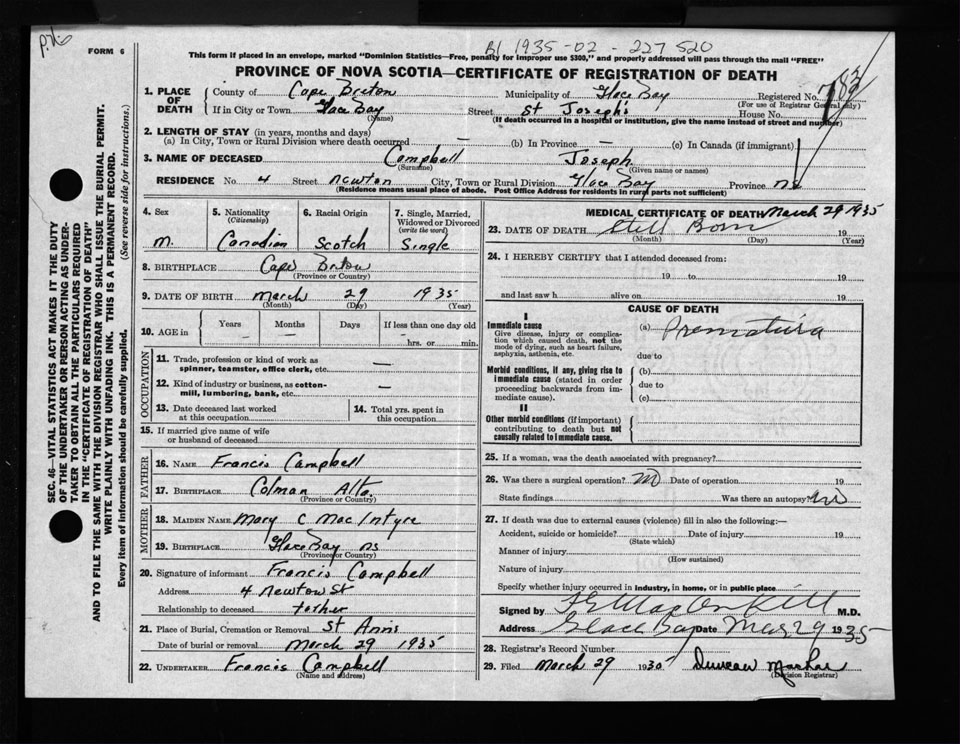 B1 1935-02-227520
FORM 6
This form if placed in an envelope, marked "Dominion Statistics—Free, penalty for improper use $300," and properly addressed will pass through the mail "FREE"
PROVINCE OF NOVA SCOTIA—CERTIFICATE OF REGISTRATION OF DEATH
1. PLACE OF DEATH
County of Cape Breton Municipality of Glace Bay Registered No. 783
(For use of Registrar General only)
If in City or Town Glace Bay Street St Joseph's House No.
(Name) (If death occurred in a hospital or institution, give the name instead of street and number)
2. LENGTH OF STAY (in years, months and days)
(a) In City, Town or Rural Division where death occurred — (b) In Province — (c) In Canada (if immigrant)
3. NAME OF DECEASED Campbell Joseph
(Surname) (Given name or names)
RESIDENCE No. 4 Street Newton City, Town or Rural Division Glace Bay Province NS
(Residence means usual place of abode. Post Office Address for residents in rural parts not sufficient)
SEC. 46—VITAL STATISTICS ACT MAKES IT THE DUTY
OF THE UNDERTAKER OR PERSON ACTING AS UNDER-
TAKER TO OBTAIN ALL THE PARTICULARS REQUIRED
IN THE "CERTIFICATE OF REGISTRATION OF DEATH"
AND TO FILE THE SAME WITH THE DIVISION REGISTRAR WHO SHALL ISSUE THE BURIAL PERMIT.
WRITE PLAINLY WITH UNFADING INK. THIS IS A PERMANENT RECORD.
Every item of information should be carefully supplied. (See reverse side for instructions.)
4. Sex 5. Nationality 6. Racial Origin 7. Single, Married,
(Citizenship) Widowed or Divorced
(write the word)
M. Canadian Scotch Single
8. BIRTHPLACE Cape Breton
(Province or Country)
9. DATE OF BIRTH March 29 1935
(Month) (Day) (Year)
10. AGE in Years Months Days If less than one day old
— — hrs. or min.
OCCUPATION
11. Trade, profession or kind of work as —
spinner, teamster, office clerk, etc.
12. Kind of industry or business, as cotton- —
mill, lumbering, bank, etc.
13. Date deceased last worked
at this occupation
14. Total yrs. spent in
this occupation
15. If married give name of wife
or husband of deceased
FATHER
16. NAME Francis Campbell
17. BIRTHPLACE Colman Alta.
(Province or Country)
MOTHER
18. MAIDEN NAME Mary C MacIntyre
19. BIRTHPLACE Glace Bay NS
(Province or Country)
20. Signature of informant Francis Campbell
Address 4 Newton St
Relationship to deceased father
21. Place of Burial, Cremation or Removal St Anns
Date of burial or removal March 29 1935
22. UNDERTAKER Francis Campbell
(Name and address)
MEDICAL CERTIFICATE OF DEATH March 29 1935
23. DATE OF DEATH Still Born 19
(Month) (Day) (Year)
24. I HEREBY CERTIFY that I attended deceased from:
19 to 19
and last saw h alive on 19
CAUSE OF DEATH
I
Immediate cause
Give disease, injury or complica-
tion which caused death, not the
mode of dying, such as heart failure,
asphyxia, asthenia, etc.
(a) Prematura
due to
Morbid conditions, if any, giving rise to
immediate cause (stated in order
proceeding backwards from im-
mediate cause).
(b)
due to
(c)
II
Other morbid conditions (if important)
contributing to death but not
causally related to immediate cause.
25. If a woman, was the death associated with pregnancy?
26. Was there a surgical operation? No Date of operation 19
State findings Was there an autopsy? No
27. If death was due to external causes (violence) fill in also the following:—
Accident, suicide or homicide? Date of injury 19
(State which)
Manner of injury
(How sustained)
Nature of injury
Specify whether injury occurred in industry, in home, or in public place
Signed by M.D.
Address Glace Bay Date Mar 29 1935
28. Registrar's Record Number
29. Filed March 29 1935 Duncan
(Division Registrar)